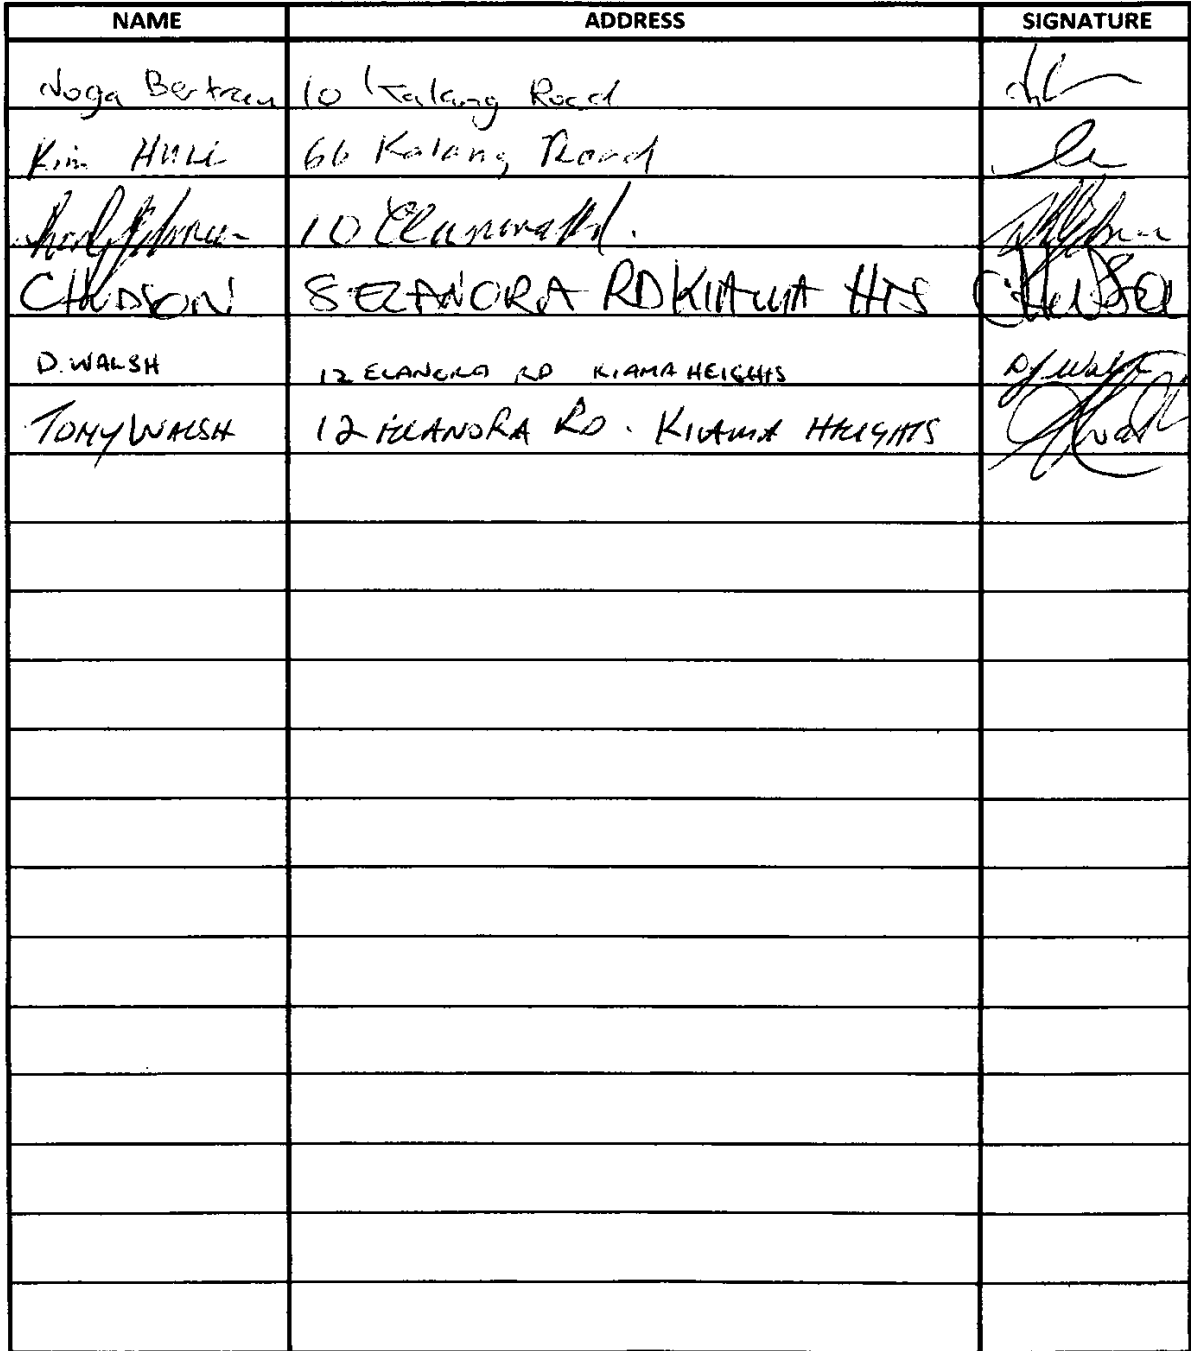 NAME ADDRESS SIGNATURE
Noga Bertram 10 Kalang Road
Kim HULL 66 Kalang Road
10
C HUDSON 8 ELANORA RD KIAMA HTS C Hudson
D. WALSH 12 ELANORA RD KIAMA HEIGHTS DJ Walsh
TONY WALSH 12 ELANORA RD. KIAMA HEIGHTS